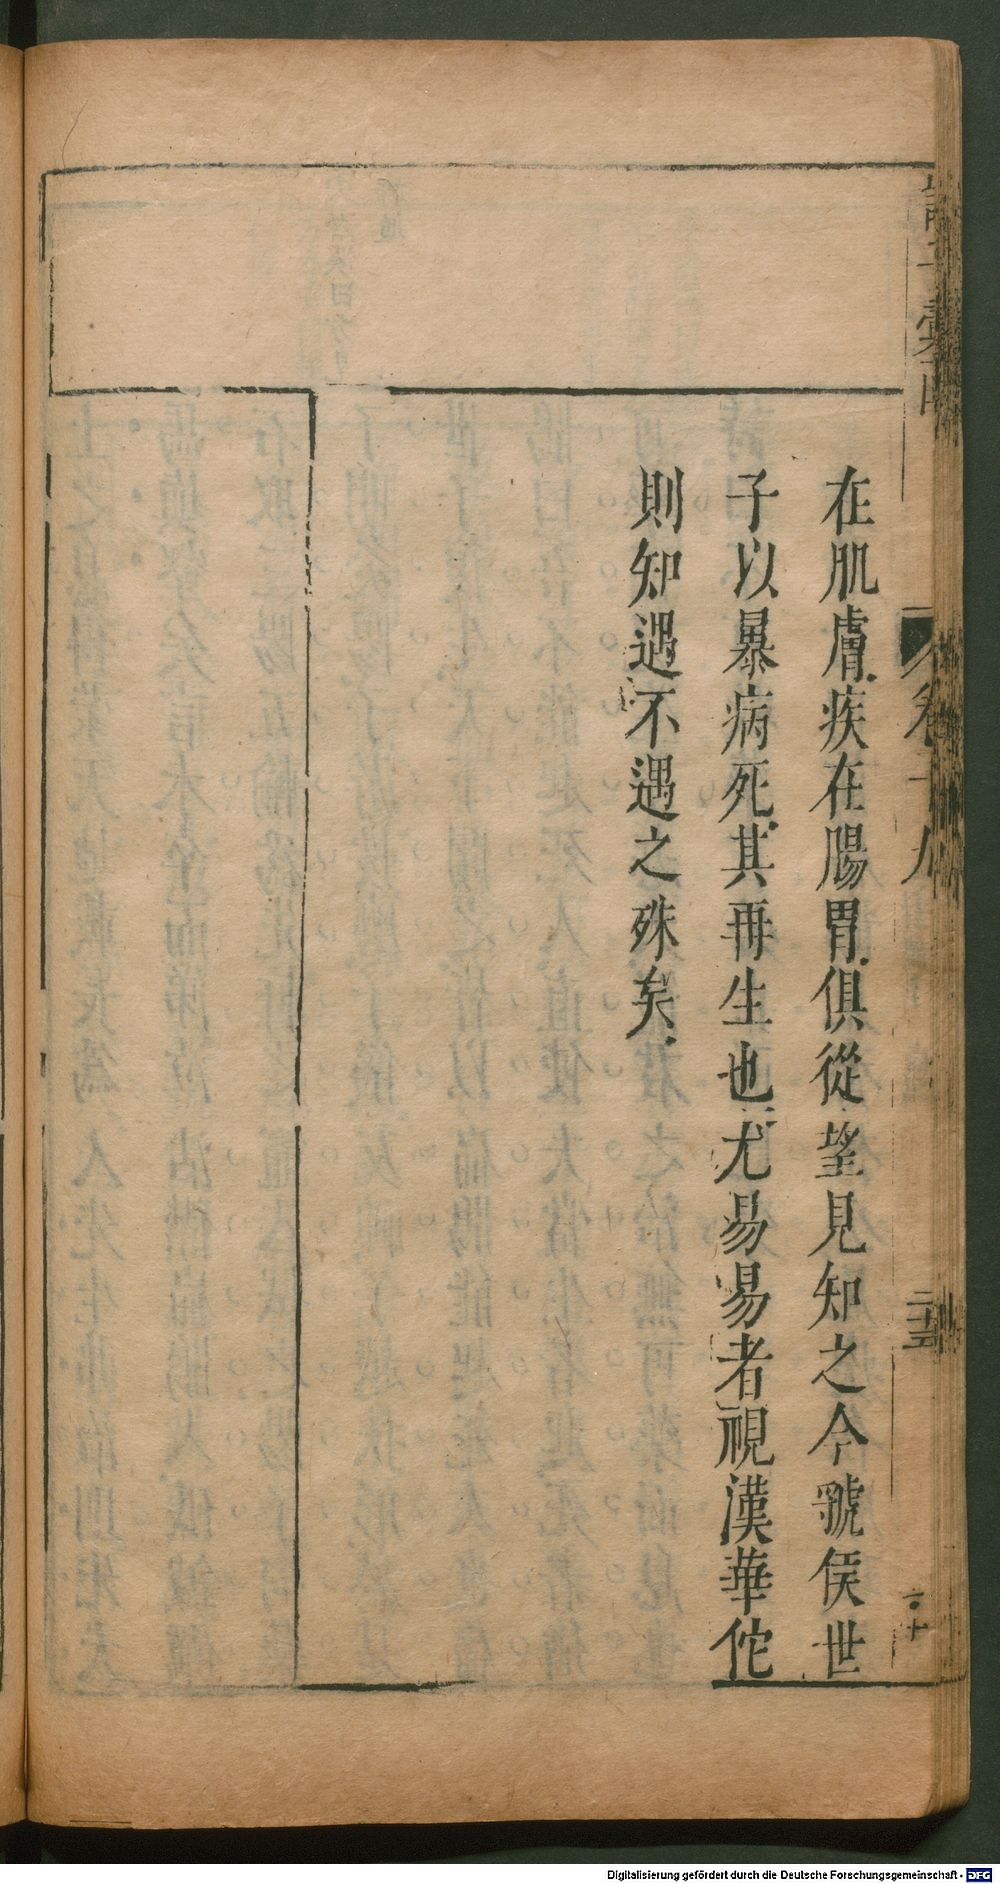 在肌膚疾在腸胃俱從望見知之今虢侯世
子以暴病死其再生也尤易易者視漢華佗
則知遇不遇之殊矣
二十五
Digitalisierung gefördert durch die Deutsche Forschungsgemeinschaft - DFG